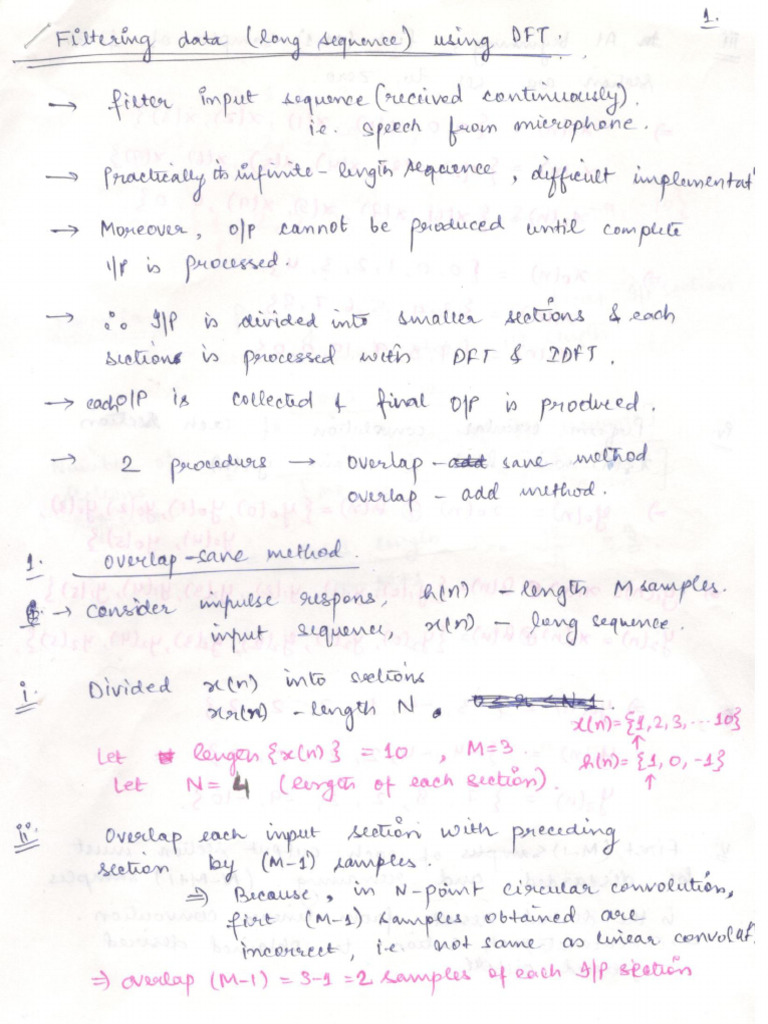 1.
Filtering data (long sequence) using DFT.
→ filter input sequence (received continuously).
i.e. speech from microphone.
→ Practically infinite-length sequence, difficult implementat
→ Moreover, O/P cannot be produced until complete
I/P is processed.
→ ∴ I/P is divided into smaller sections & each
sections is processed with DFT & IDFT.
→ each O/P is collected & final O/P is produced.
→ 2 procedurs → overlap - add save method
overlap - add method.
1. overlap-save method.
→ consider impulse respons, h(n) - length M samples.
input sequence, x(n) - long sequence.
i. Divided x(n) into sections
xr(n) - length N. 0 ≤ n ≤ N-1
x(n)={1,2,3,...10}
↑
Let length {x(n)} = 10 , M=3.
h(n)={1, 0, -1}
↑
Let N= 4 (length of each section).
ii. Overlap each input section with preceding
section by (M-1) samples.
⇒ Because, in N-point circular convolution,
first (M-1) samples obtained are
incorrect, i.e not same as linear convolat
⇒ overlap (M-1) = 3-1 = 2 samples of each I/P section